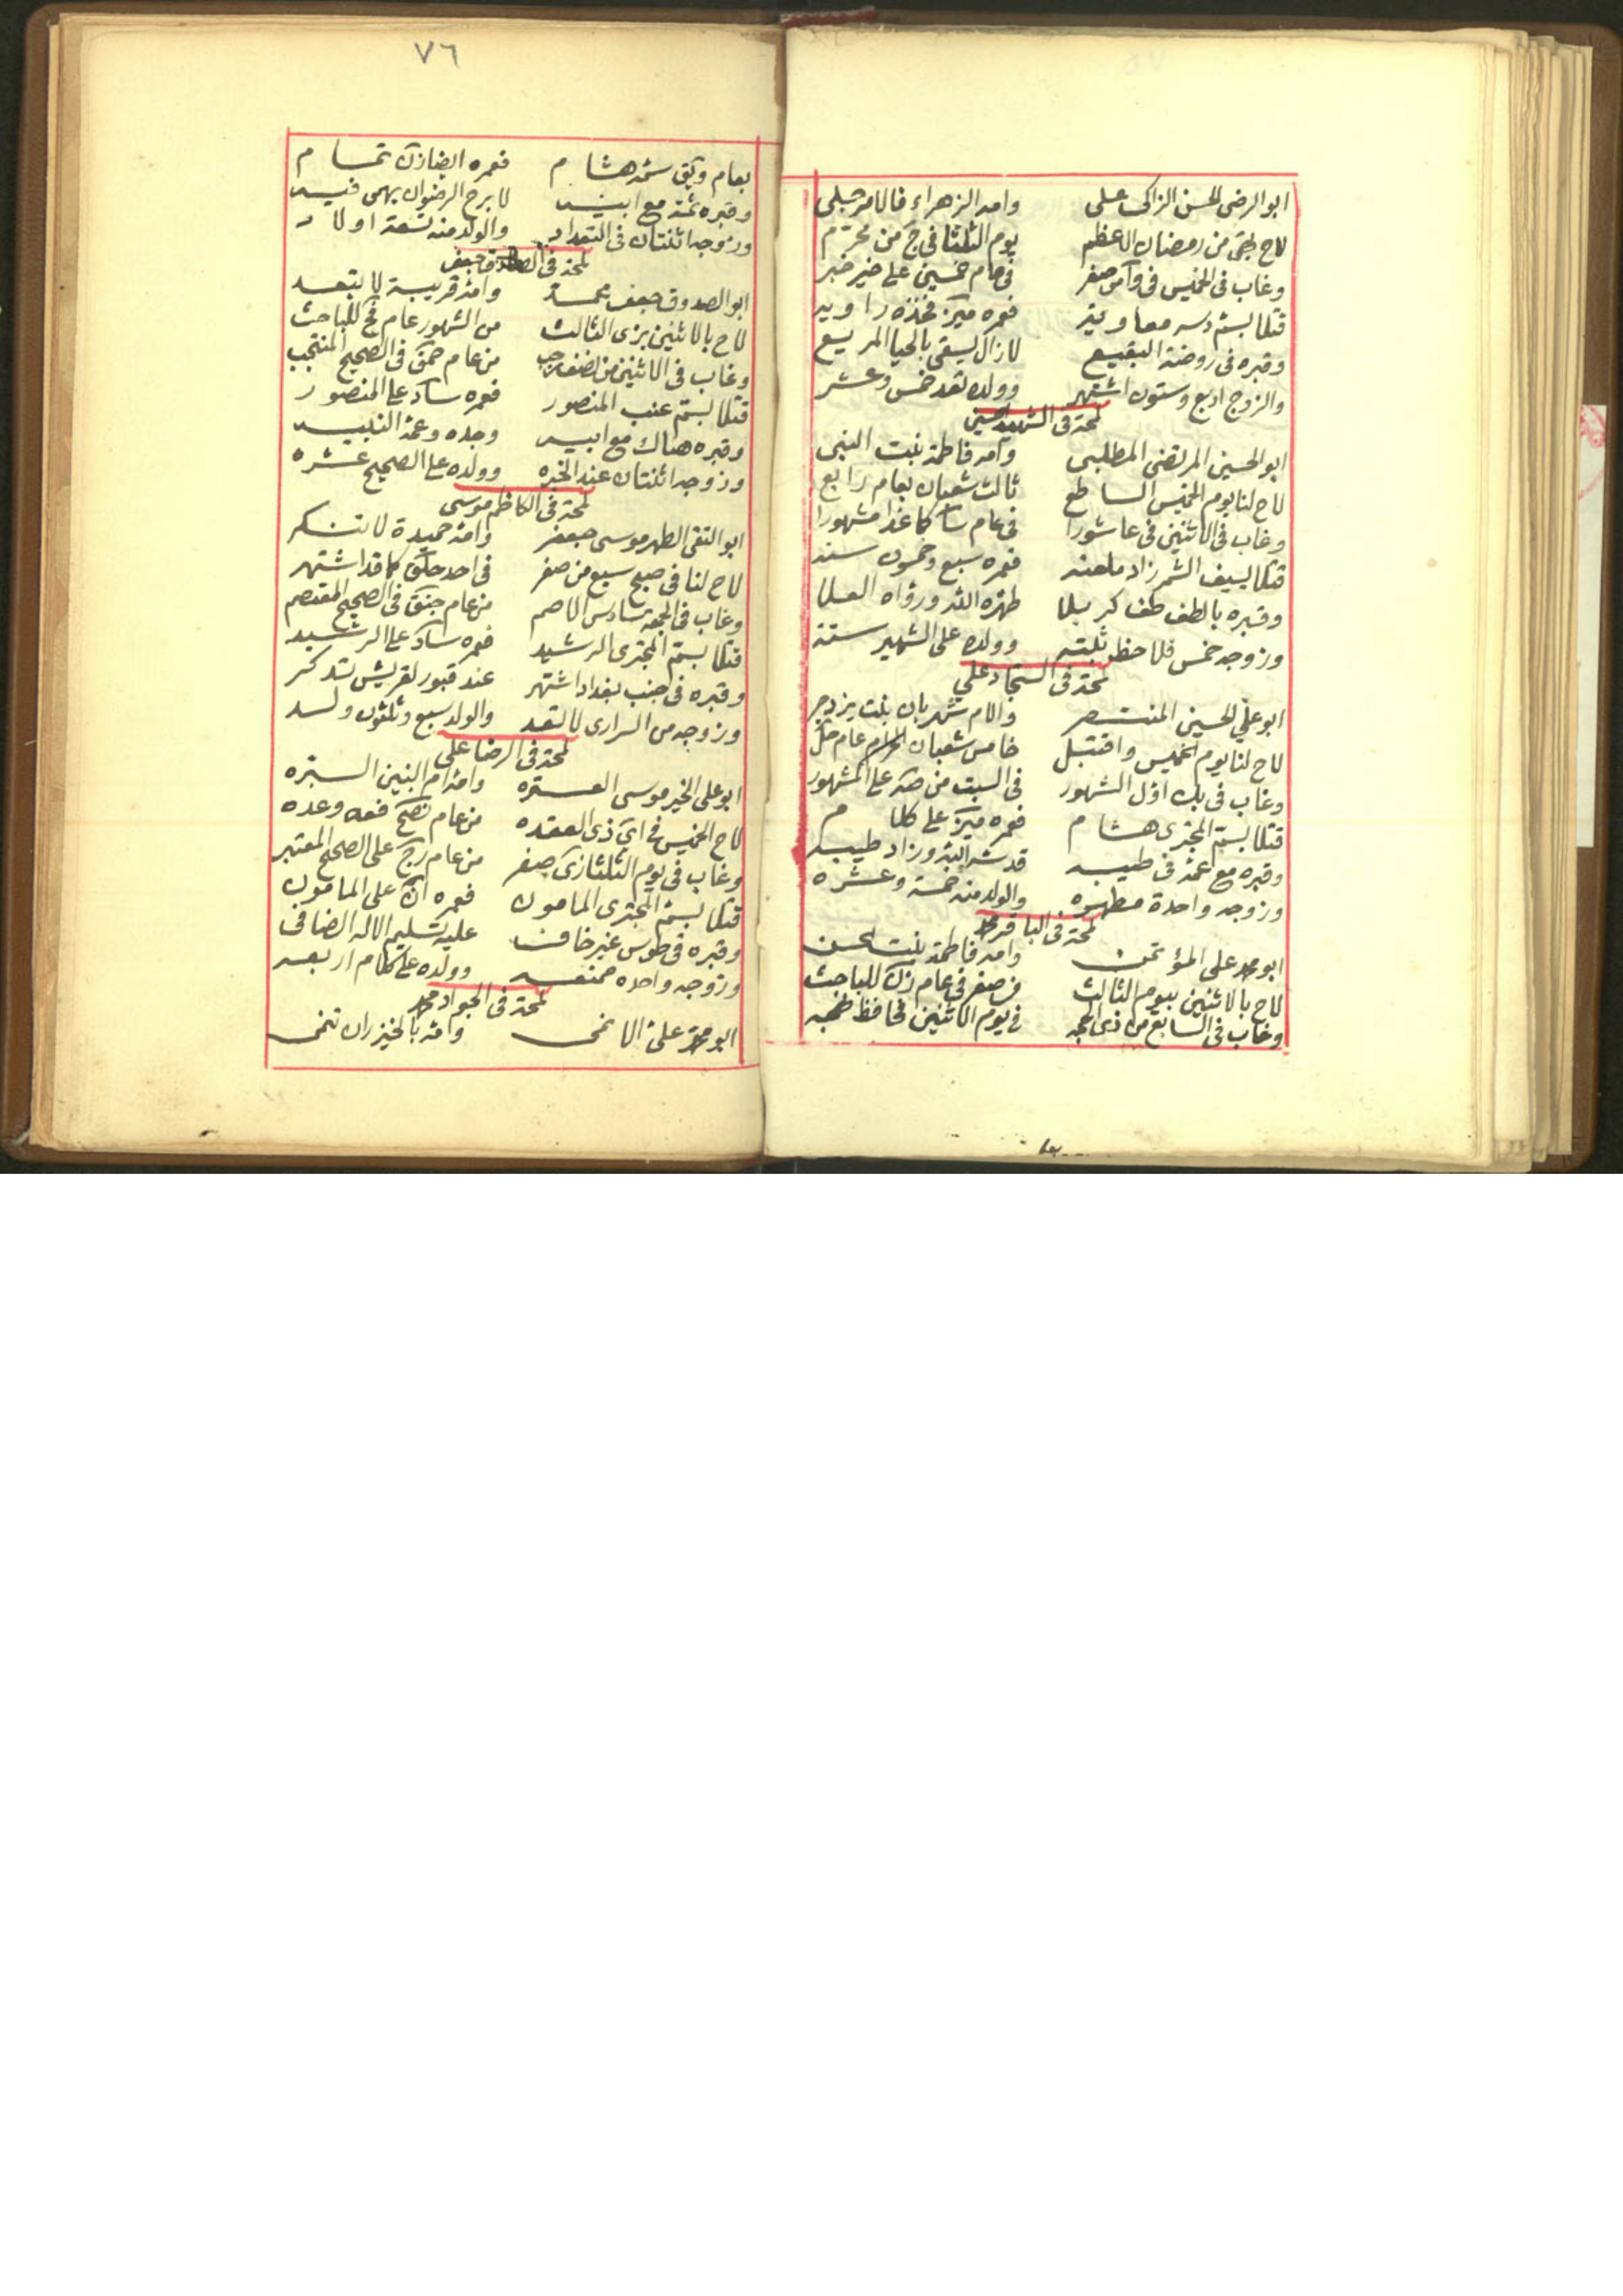 ابو الرضى الحسن الزاكى على وامه الزهراء فالامر جلى
لاح بيتى من رمضان الاعظم يوم الثلثا فى ج من محرم
وغاب فى الخميس فى وآمن صفر فى عام خمسين على خير خبر
قتلا بسم دسه معاويه فعمره ميز فخذه راويه
وقبره فى روضة البقيع لا زال يسقى بالحيا المريع
والزوج اربع وستون اشتهر وولده تعد خمس وعشر
لمحة فى الشهيد حسين
ابو الحسين المرتضى المطلبى وامه فاطمة بنت النبى
لاح لنا يوم الخميس الساطع ثالث شعبان بعام رابع
وغاب فى الاثنين فى عاشورا فى عام سا كاغدا مشهورا
قتلا بسيف الشمر زاد ملعنه فعمره سبع وخمسون سنه
وقبره بالطف طف كربلا طهره الله ورواه العلا
وزوجه خمس فلاحظ ثبته وولده على الشهير ستة
لمحة فى السجاد على
ابو علي الحسين المنتصر والام شهربان بنت يزدجر
لاح لنا يوم الخميس واقتبل خامس شعبان الحرام عام حل
وغاب فى بك اول الشهور فى السبت من صه على المشهور
قتلا بسم المجترى هشام فعمره ميز على كلام
وقبره مع عمه فى طيبه قد شرف الله وزاد طيبه
وزوجه واحدة مطهره والولد منه خمسة وعشره
لمحة فى الباقر محمد
ابو محمد على المؤتمن وامه فاطمة بنت الحسن
لاح بالاثنين بيوم الثالث من صفر فى عام زن للباحث
وغاب فى السابع من ذى الحجه فى يوم الاثنين فحافظ نهجه
٧٦
بعام وبق سمه هشام فعمره ايضا زن تمام
وقبره ثمة مع ابيه لا برح الرضوان يهمى فيه
وزوجه اثنتان فى التعداد والولد منه تسعة اولاد
لمحة فى الصادق جعفر
ابو الصدوق جعفر محمد وامه قريبة لا تبعد
لاح بالاثنين بزى الثالث من الشهور عام فج للباحث
وغاب فى الاثنين من نصف رجب من عام حمق فى الصحيح المنتجب
قتلا بسم عنب المنصور فعمره سا د على المنصور
وقبره هناك مع ابيه وجده وعمه النبيه
وزوجه اثنتان عند الخبره وولده على الصحيح عشره
لمحة فى الكاظم موسى
ابو التقى الطهر موسى جعفر وامه حميدة لا تنكر
لاح لنا فى صبح سبع من صفر فى احد حكق كما قد اشتهر
وغاب فى الجمعة سادس الاصم من عام جنق فى الصحيح المعتصم
قتلا بسم المجترى الرشيد فعمره سا د على الرشيد
وقبره فى جنب بغداد اشتهر عند قبور لقريش تذكر
وزوجه من السرارى لا تعد والولد سبع وثلثون ولد
لمحة فى الرضا على
ابو على الخير موسى العتره وامه ام البنين البتره
لاح الخميس فى اي ذى القعده من عام نصح فعه وعده
وغاب فى يوم الثلثا زى صفر من عام رج على الصحيح المعتبر
قتلا بسم المجترى المامون فعمره ان على المامون
وقبره فى طوس غير خاف عليه تسليم الاله الضافى
وزوجه واحده ممنعه وولده على كلام اربعه
لمحة فى الجواد محمد
ابو محمد على الانمى وامه بالخيزران تنمى